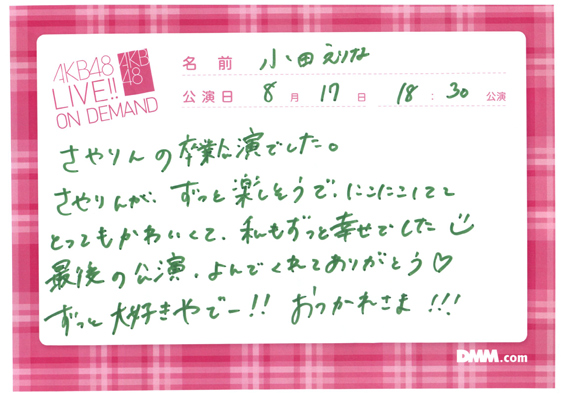 AKB48
LIVE!!
ON DEMAND
AKB
48
名前 小田えりな
公演日 8月17日 18:30公演
さやりんの卒業公演でした。
さやりんが、ずっと楽しそうで、にこにこしてて
とってもかわいくて、私もずっと幸せでした
最後の公演、よんでくれてありがとう♡
ずっと大好きやでー!! おつかれさま!!!
DMM.com